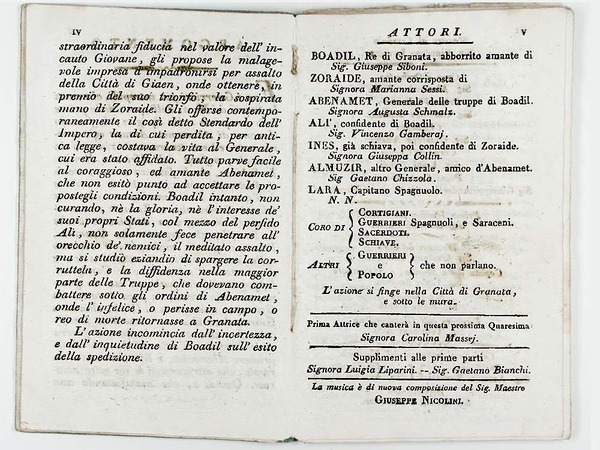 IV
straordinaria fiducia nel valore dell' in-
cauto Giovane, gli propose la malage-
vole impresa d'impadronirsi per assalto
della Città di Giaen, onde ottenere, in
premio del suo trionfo, la sospirata
mano di Zoraide. Gli offerse contempo-
raneamente il così detto Stendardo dell'
Impero, la di cui perdita, per anti-
ca legge, costava la vita al Generale,
cui era stato affidato. Tutto parve facile
al coraggioso, ed amante Abenamet,
che non esitò punto ad accettare le pro-
postegli condizioni. Boadil intanto, non
curando, nè la gloria, nè l'interesse de'
suoi propri Stati, col mezzo del perfido
Ali, non solamente fece penetrare all'
orecchio de' nemici, il meditato assalto,
ma si studiò eziandio di spargere la cor-
ruttela, e la diffidenza nella maggior
parte delle Truppe, che dovevano com-
battere sotto gli ordini di Abenamet,
onde l'infelice, o perisse in campo, o
reo di morte ritornasse a Granata.
L'azione incomincia dall'incertezza,
e dall'inquietudine di Boadil sull'esito
della spedizione.
V
ATTORI.
BOADIL, Re di Granata, abborrito amante di
Sig. Giuseppe Siboni.
ZORAIDE, amante corrisposta di
Signora Marianna Sessi.
ABENAMET, Generale delle truppe di Boadil.
Signora Augusta Schmalz.
ALI', confidente di Boadil.
Sig. Vincenzo Gamberaj.
INES, già schiava, poi confidente di Zoraide.
Signora Giuseppa Collin.
ALMUZIR, altro Generale, amico d'Abenamet.
Sig Gaetano Chizzola.
LARA, Capitano Spagnuolo.
N. N.
CORO DI { CORTIGIANI.
GUERRIERI Spagnuoli, e Saraceni.
SACERDOTI.
SCHIAVE.
ALTRI { GUERRIERI
e
POPOLO } che non parlano.
L'azione si finge nella Città di Granata,
e sotto le mura.
Prima Attrice che canterà in questa prossima Quaresima
Signora Carolina Massej.
Supplimenti alle prime parti
Signora Luigia Liparini. -- Sig. Gaetano Bianchi.
La musica è di nuova composizione del Sig. Maestro
GIUSEPPE NICOLINI.